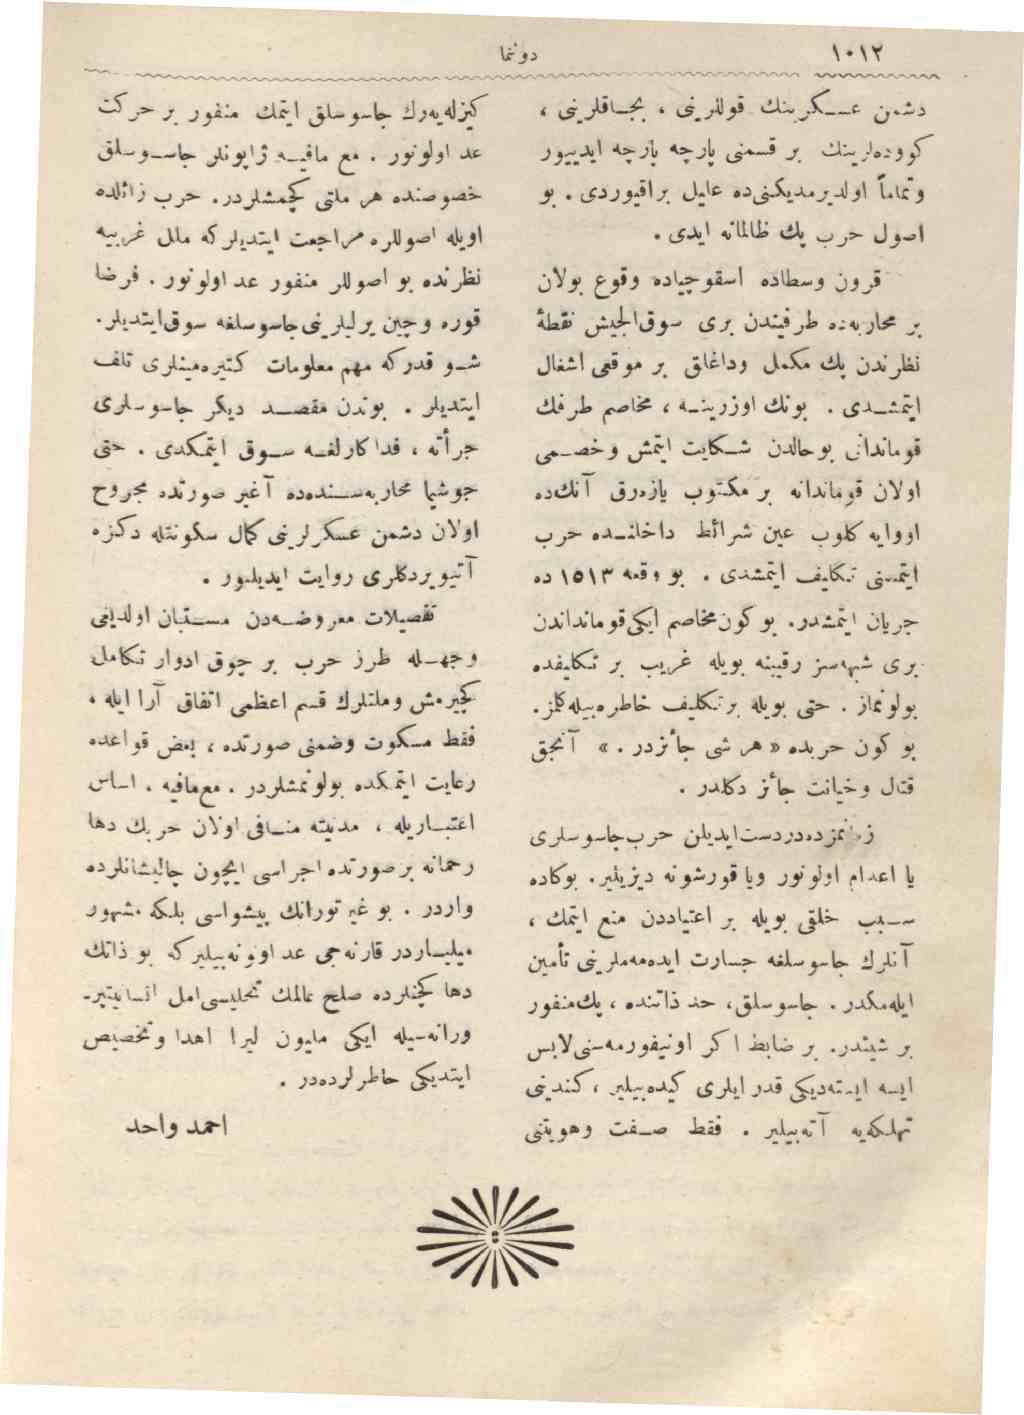 ١٠١٢
دوننما
دشمن عسكرینك قوللرینی ، بجاقلرینی ،
كوودەلرینك بر قسمنی پارچه پارچه ایدییور
وتماماً اولدیرمدیكنی‌ده علیل براقیوردی . بو
اصول حرب پك ظالمانه ایدی .
قرون وسطاده اسقوچیاده وقوع بولان
بر محاربه‌ده طرفیندن بری سوق‌الجیش نقطۀ
نظرندن پك مكمل وداغلق بر موقعی اشغال
ایتمشدی . بونك اوزرینه ، مخاصم طرفك
قوماندانی بو حالدن شكایت ایتمش وخصمی
اولان قومانداننه بر مكتوب یازه‌رق آنك‌ده
اووایه كلوب عین شرائط داخلنده حرب
ایتمسنی تكلیف ایتمشدی . بو وقعه ١٥١٣ ده
جریان ایتمشدر. بو كون مخاصم ایكی قومانداندن
بری شبهه‌سز رقیبنه بویله غریب بر تكلیفده
بولونماز . حتی بویله بر تكلیف خاطره بیله كلمز.
بو كون حربده « هر شی جائزدر . » آنجق
قتال وخیانت جائز دكلدر .
زمانمزده دردست ایدیلن حرب جاسوسلری
یا اعدام اولونور ویا قورشونه دیزیلیر. بوكاده
سبب خلقی بویله بر اعتیاددن منع ایتمك ،
آنلرك جاسوسلغه جسارت ایده‌مه‌ملرینی تأمین
ایله‌مكدر . جاسوسلق، حد ذاتنده ، پك منفور
بر شیئدر. بر ضابط اكر اونیفورمه‌سنی لابس
ایسه ایسته‌دیكی قدر ایلری كیده‌بیلیر ، كندینی
تهلكه‌یه آته‌بیلیر . فقط صفت وهویتنی
كیزله‌یه‌رك جاسوسلق ایتمك منفور بر حركت
عد اولونور . مع مافیه ژاپونلر جاسوسلق
خصوصنده هر ملتی كچمشلردر. حرب زائلده
اویله اصوللره مراجعت ایتدیلر كه ملل غربیه
نظرنده بو اصوللر منفور عد اولونور . فرضا
قوره وچین یرلیلرینی جاسوسلغه سوق ایتدیلر.
شو قدر كه مهم معلومات كتیره‌مینلری تلف
ایتدیلر . بوندن مقصد دیكر جاسوسلری
جرأته ، فداكارلغه سوق ایتمكدی . حتی
جوشیما محاربه‌سنده‌ده آغیر صورتده مجروح
اولان دشمن عسكرلرینی كمال سكونتله دكزه
آتیویردكلری روایت ایدیلیور .
تفصیلات معروضه‌دن مستبان اولدیغی
وجهله طرز حرب بر چوق ادوار تكامل
كچیرمش وملتلرك قسم اعظمی اتفاق آرا ایله ،
فقط مسكوت وضمنی صورتده ، بعض قواعده
رعایت ایتمكده بولونمشلردر . مع‌مافیه . اساس
اعتباریله ، مدنیته منافی اولان حربك دها
رحمانه بر صورتده اجراسی ایچون چالیشانلرده
واردر . بو غیرتورانك پیشواسی بلكه مشهور
میلیاردر قارنه‌جی عد اوونه‌بیلیر كه بو ذاتك
دها كچنلرده صلح عالمك تجلیسی امل انسانیتپر-
ورانه‌سیله ایكی ملیون لیرا اهدا وتخصیص
ایتدیكی خاطرلرده‌در .
احمد واحد